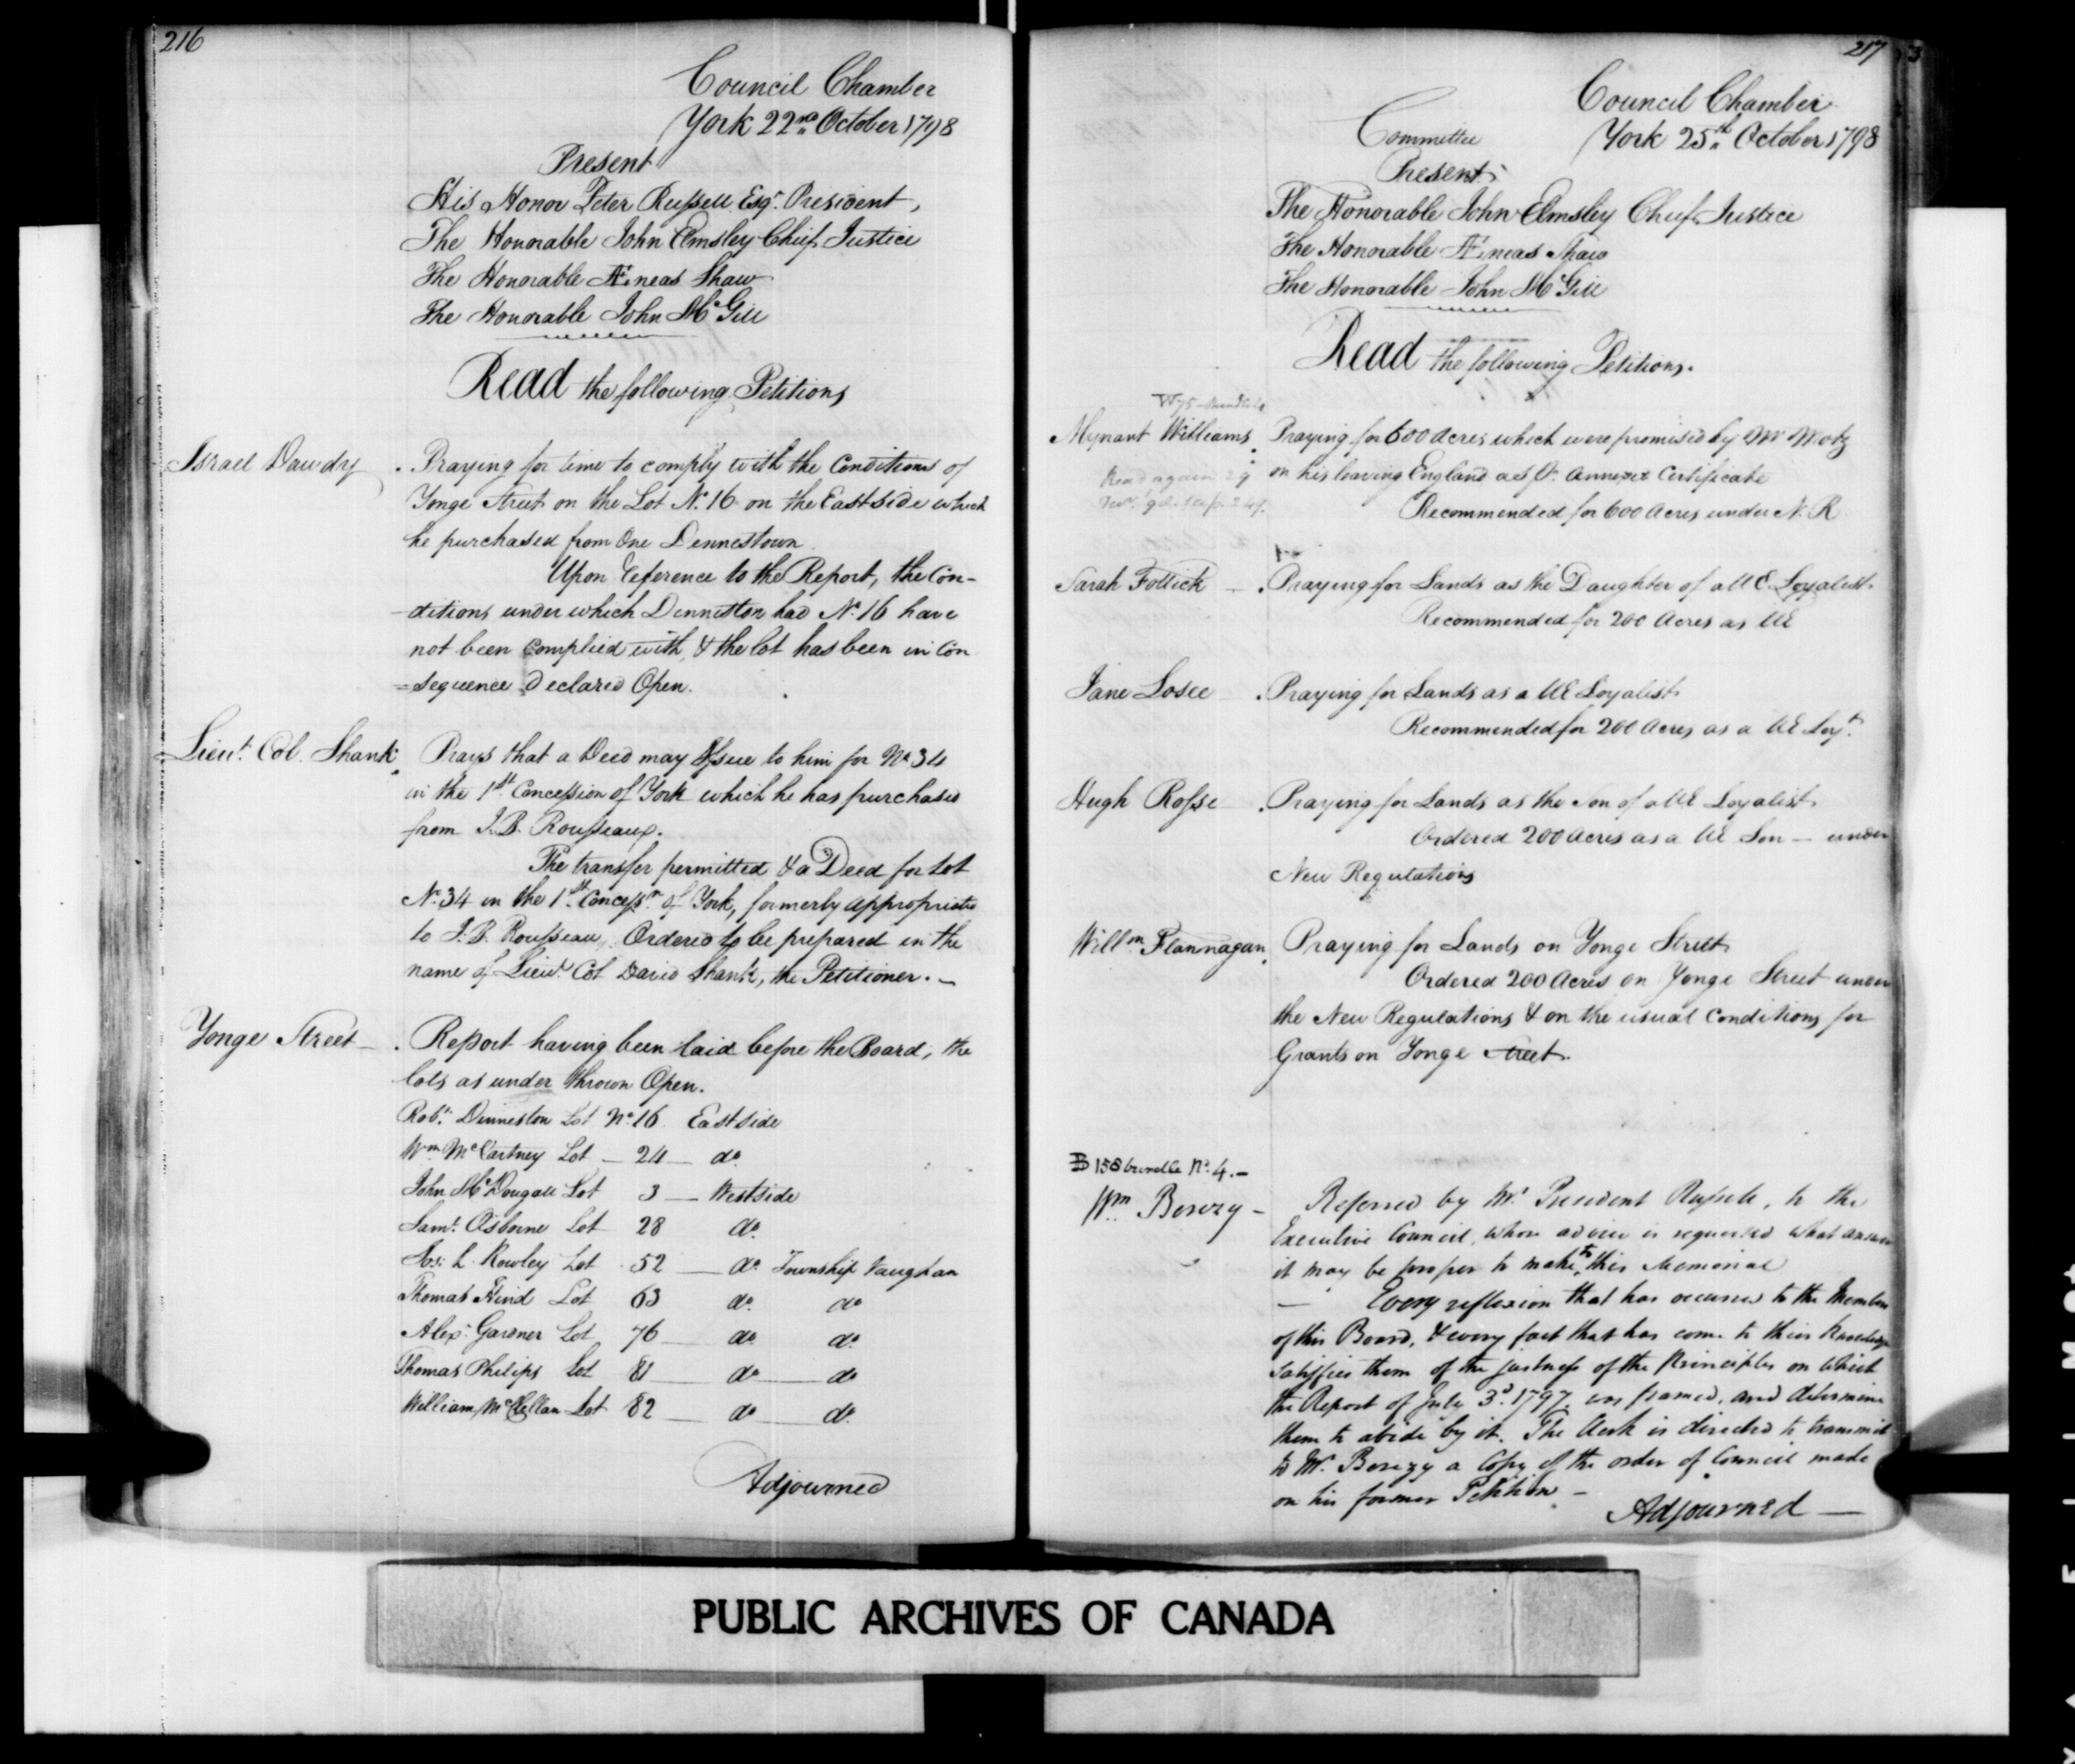 216
Council Chamber
York 22nd October 1798
Present
His Honor Peter Russell Esqr. President,
The Honorable John Elmsley Chief Justice
The Honorable Æneas Shaw
The Honorable John McGill
Read the following Petitions
Israel Dawdry . Praying for time to comply with the Conditions of
Yonge Street on the Lot No. 16 on the East side which
he purchased from One Dennestown
Upon reference to the Report, the Con-
-ditions under which Denneston had No. 16 have
not been complied with, & the lot has been in Con
=sequence Declared Open.
Lieut. Col. Shank. Prays that a Deed may Issue to him for No 34
in the 1st Concession of York which he has purchased
from J. B. Rousseaux.
The transfer permitted & a Deed for Lot
No. 34 in the 1st Concessn. of York, formerly appropriated
to J. B. Rousseau, Ordered to be prepared in the
name of Lieut. Col David Shank, the Petitioner. -
Yonge Street - . Report having been laid before the Board, the
lots as under thrown Open.
Robt. Dinneston Lot No. 16 East side
Wm. McCartney Lot - 24 - do.
John McDougall Lot 3 - West side
Saml. Osborne Lot 28 do.
Jos: L. Rowley Lot 52 - do. Township Vaughan
Thomas Hind Lot 63 do. do
Alexr. Gardner Lot 76 - do. do.
Thomas Philips Lot 81 - do - do
William McClellan Lot 82 - do - do.
Adjourned
217
Council Chamber
Committee York 25th October 1798
Present
The Honorable John Elmsley Chief Justice
The Honorable Æneas Shaw
The Honorable John McGill
Read the following Petitions.
W 75
Mynant Williams. Praying for 600 Acres which were promised by Mr Motz
Read again 29
on his leaving England as pr. annexed Certificate
Recommended for 600 Acres under N. R
Sarah Follick - . Praying for Lands as the Daughter of a UE. Loyalist.
Recommended for 200 Acres as UE
Jane Losee . Praying for Lands as a UE Loyalist
Recommended for 200 Acres as a UE Loyt.
Hugh Rosse . Praying for Lands as the Son of a UE Loyalist.
Ordered 200 Acres as a UE Son - under
New Regulations
Willm Flannagan. Praying for Lands on Yonge Street.
Ordered 200 Acres on Yonge Street under
the New Regulations & on the usual Conditions for
Grants on Yonge Street.
B 158 bundle No. 4. -
Wm Berczy - Referred by Mr. President Russell, to the
Executive Council, whose advice is requested what answer
it may be proper to make to this Memorial
- Every reflexion that has occurred to the Members
of this Board, & every fact that has come to their knowledge
satisfies them of the justness of the Principles on which
the Report of July 3d. 1797, was framed, and determine
them to abide by it. The Clerk is directed to transmit
to Mr. Berczy a Copy of the order of Council made
on his former Petition -
Adjourned -
PUBLIC ARCHIVES OF CANADA